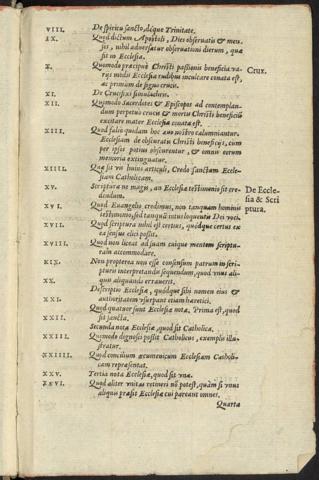 VIII. De spiritu sancto, deque Trinitate.
IX. Quod dictum Apostoli, Dies obseruatis & menses, nihil aduersatur obseruationi dierum, quæ fit in Ecclesia.
X. Quomodo præcipuè Christi passionis beneficia varijs modis Ecclesia rudibus inculcare conata est, ac primùm de signo crucis.
Crux.
XI. De Crucifixi simulachro.
XII. Quomodo Sacerdotes & Episcopos ad contemplandum perpetuò crucis & mortis Christi beneficiũ excitare mater Ecclesia conata est.
XIII. Quod falsò quidam hoc æuo nostro calumniantur. Ecclesiam de obscuratis Christi beneficijs, cum per ipsos potius obscurentur, & omnis eorum memoria extinguatur.
XIIII. Quæ sit vis huius articuli, Credo sanctam Ecclesiam Catholicam.
XV. Scripturæ ne magis, an Ecclesiæ testimonio sit credendum.
De Ecclesia & Scriptura.
XVI. Quod Euangelio credimus, non tanquam hominũ testimonio, sed tanquã intus loquentis Dei voci.
XVII. Quod scriptura nihil est certius, quódque certus ex ea sensus elici possit.
XVIII. Quod non liceat ad suam cuique mentem scripturam accommodare.
XIX. Non propterea non esse consensum patrum in scripturis interpretandis sequendum, quod vnus aliquis aliquando errauerit.
XX. Descriptio Ecclesiæ, quódque sibi nomen eius & authoritatem vsurpant etiam hæretici.
XXI. Quod quatuor sunt Ecclesiæ notæ. Prima est, quod sit sancta.
XXII. Secunda nota Ecclesiæ, quod sit Catholica.
XXIII. Quomodo dignosci possit Catholicus, exemplis illustratur.
XXIIII. Quod concilium œcumenicum Ecclesiam Catholicam repræsentat.
XXV. Tertia nota Ecclesiæ, quod sit vna.
XXVI. Quod aliter vnitas retineri nõ potest, quàm si vnus aliquis præsit Ecclesiæ cui pareant omnes.
Quarta